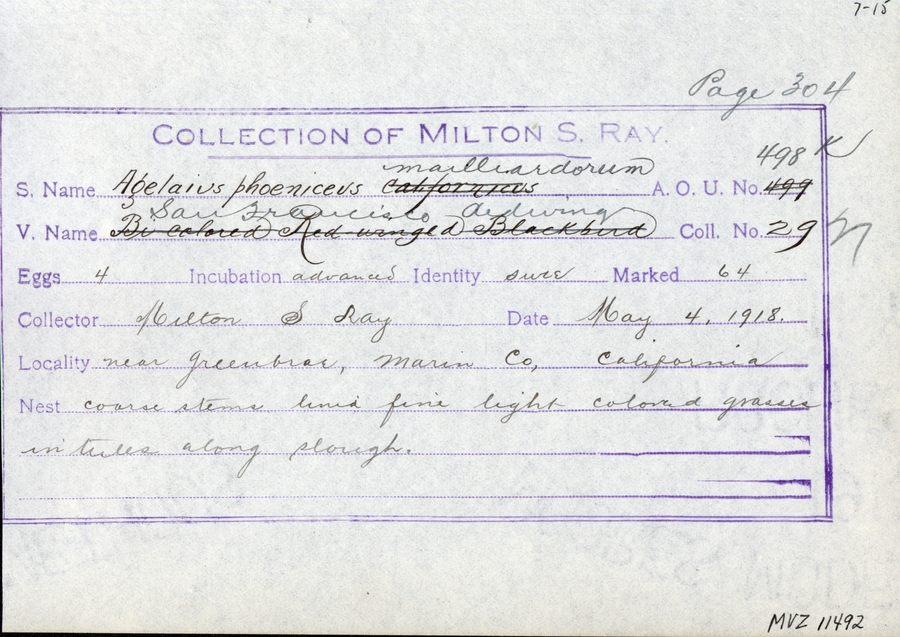 7-15
Page 304
COLLECTION OF MILTON S. RAY.
mailliardorum 498 K
S. Name Agelaius phoeniceus californicus A. O. U. No. 499
San Francisco Redwing
V. Name Bi colored Red winged Blackbird Coll. No. 29
Eggs 4 Incubation advanced Identity sure Marked 64
Collector Milton S Ray Date May 4, 1918.
Locality near Greenbrae, Marin Co, California
Nest coarse stems lined fine light colored grasses
in tules along slough.
MVZ 11492